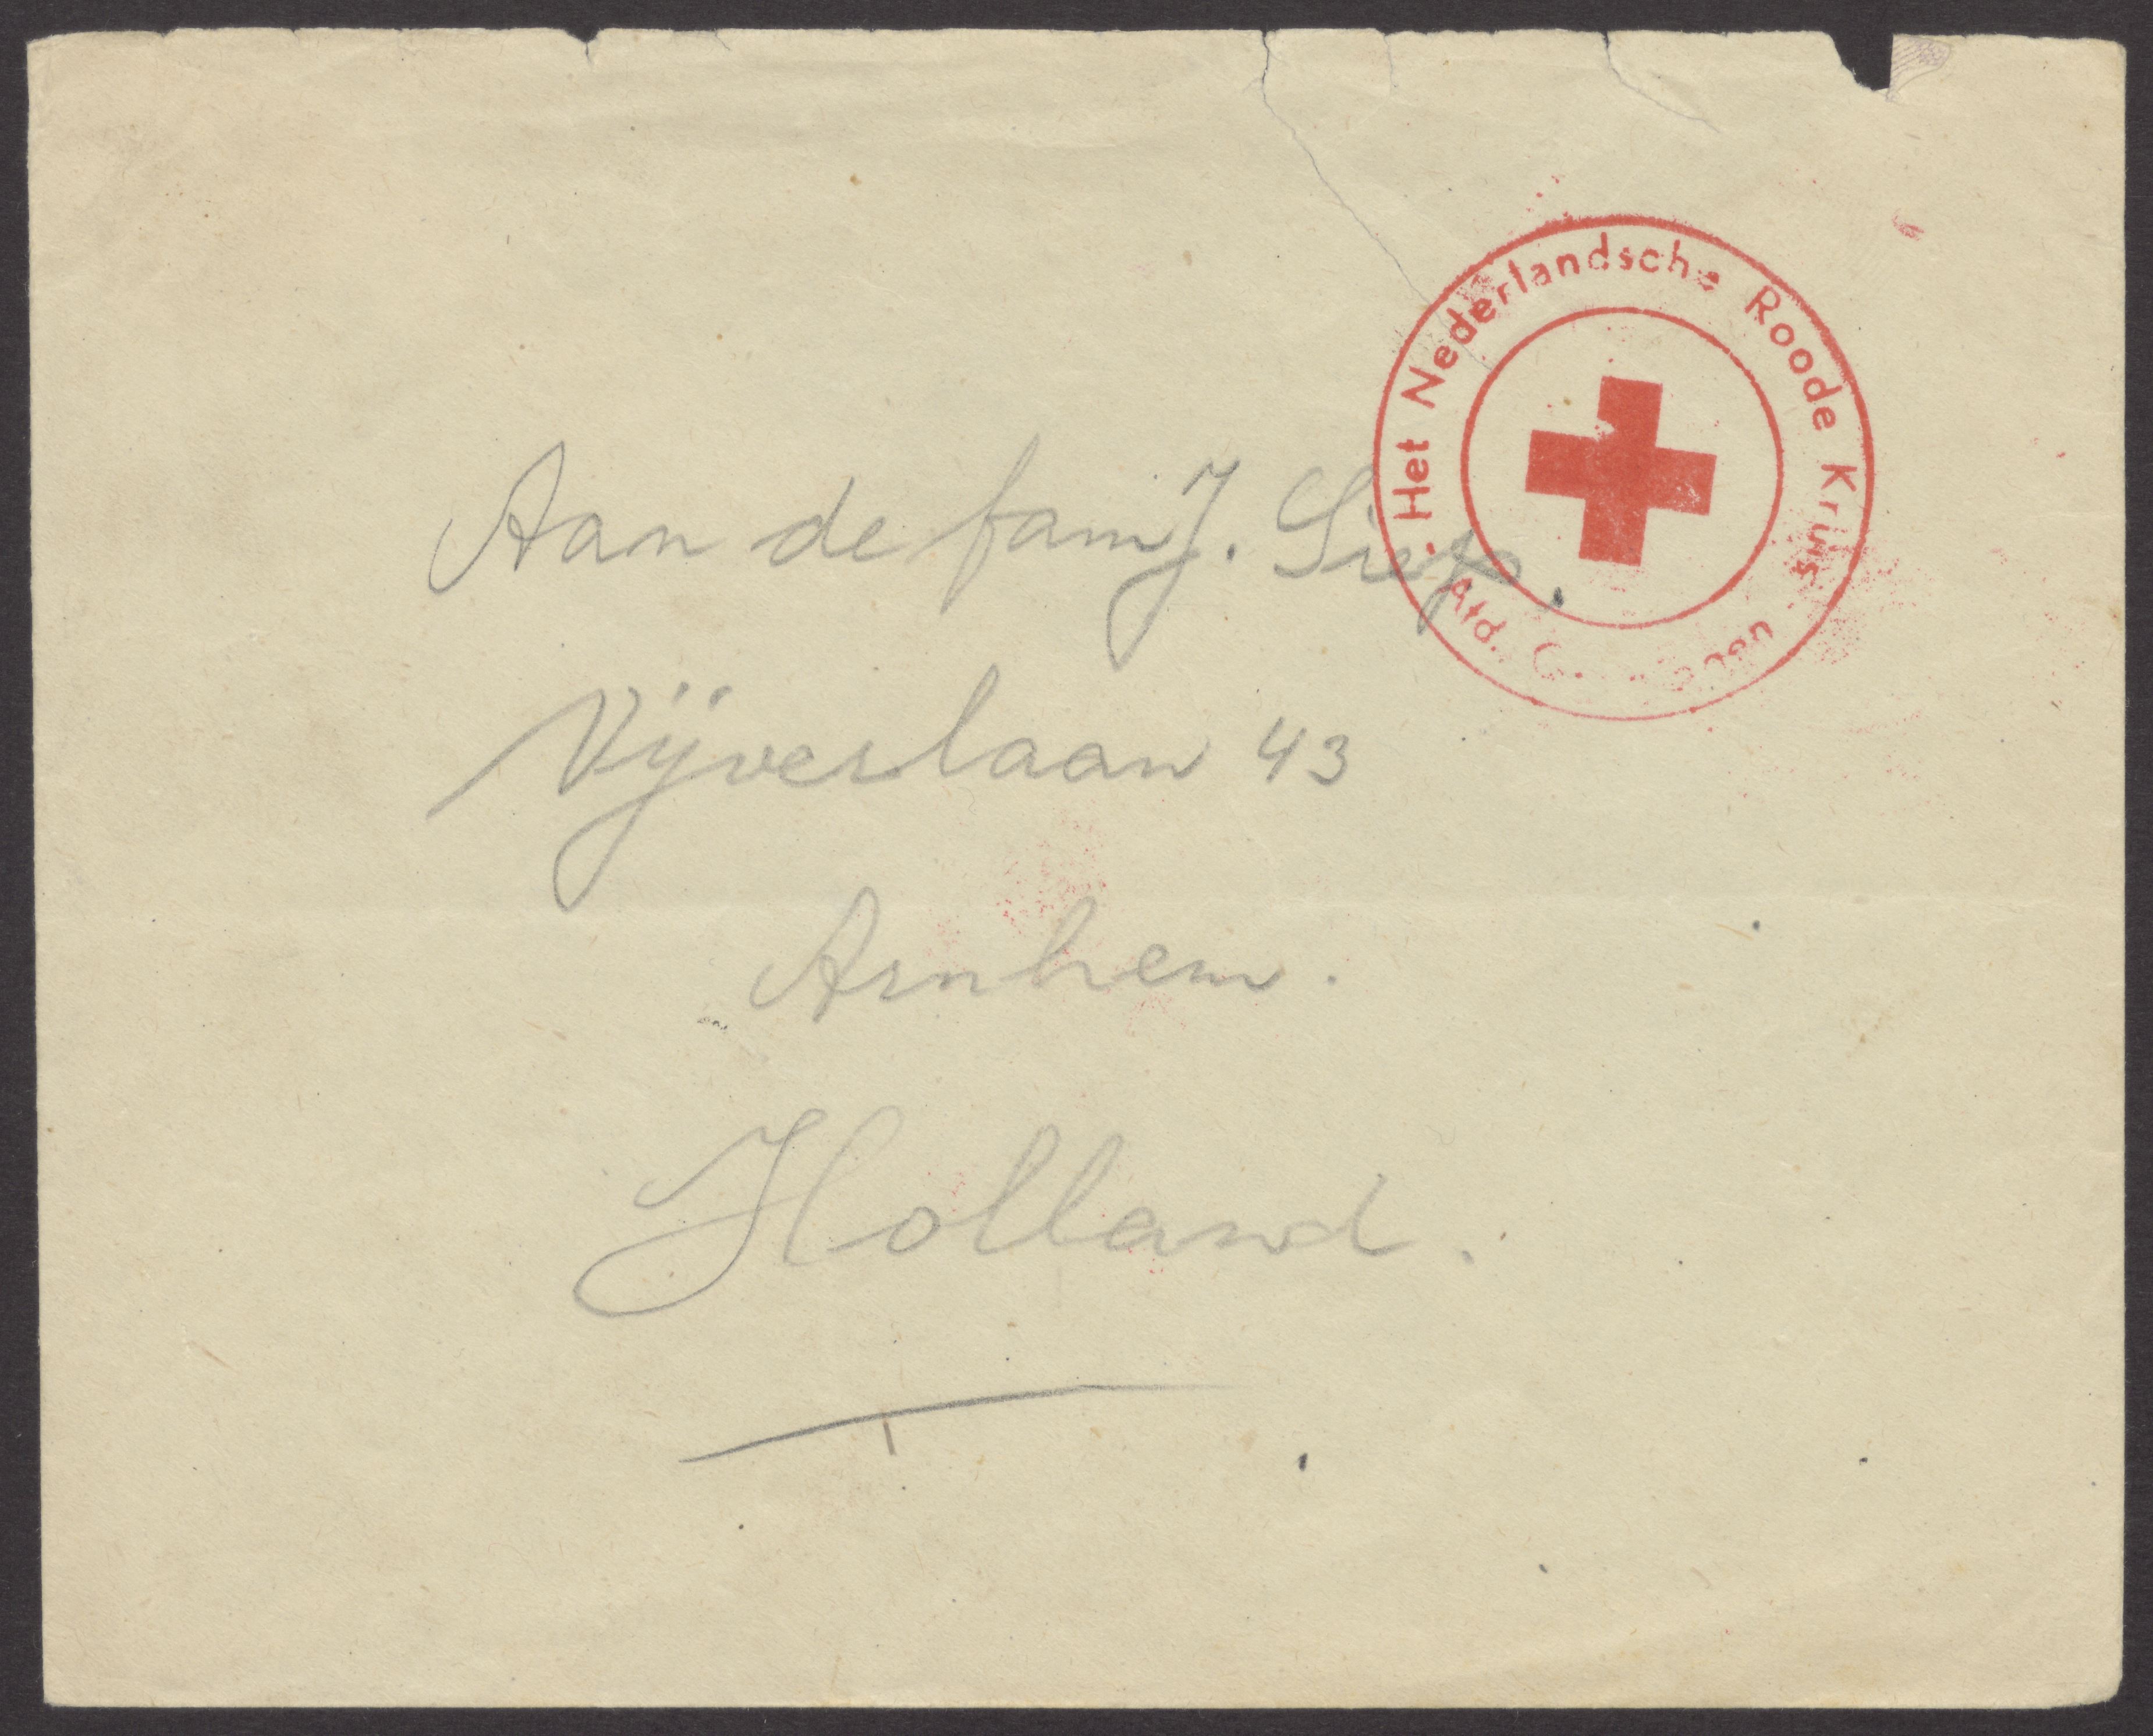 Het Nederlandsche Roode Kruis
Afd.
Aan de fam J. Siep.
Vijverlaan 43
Arnhem.
Holland.